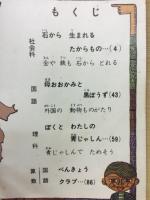 もくじ
社会科
石から 生まれる
たからもの…(4)
金や 鉄も 石から とれる
国語
母おおかみと
黒ぼうず(43)
外国の 動物ものがたり
理科
ぼくと わたしの
青じゃしん…(59)
青じゃしんで ためそう
算数 国語
べんきょう
クラブ…(86)